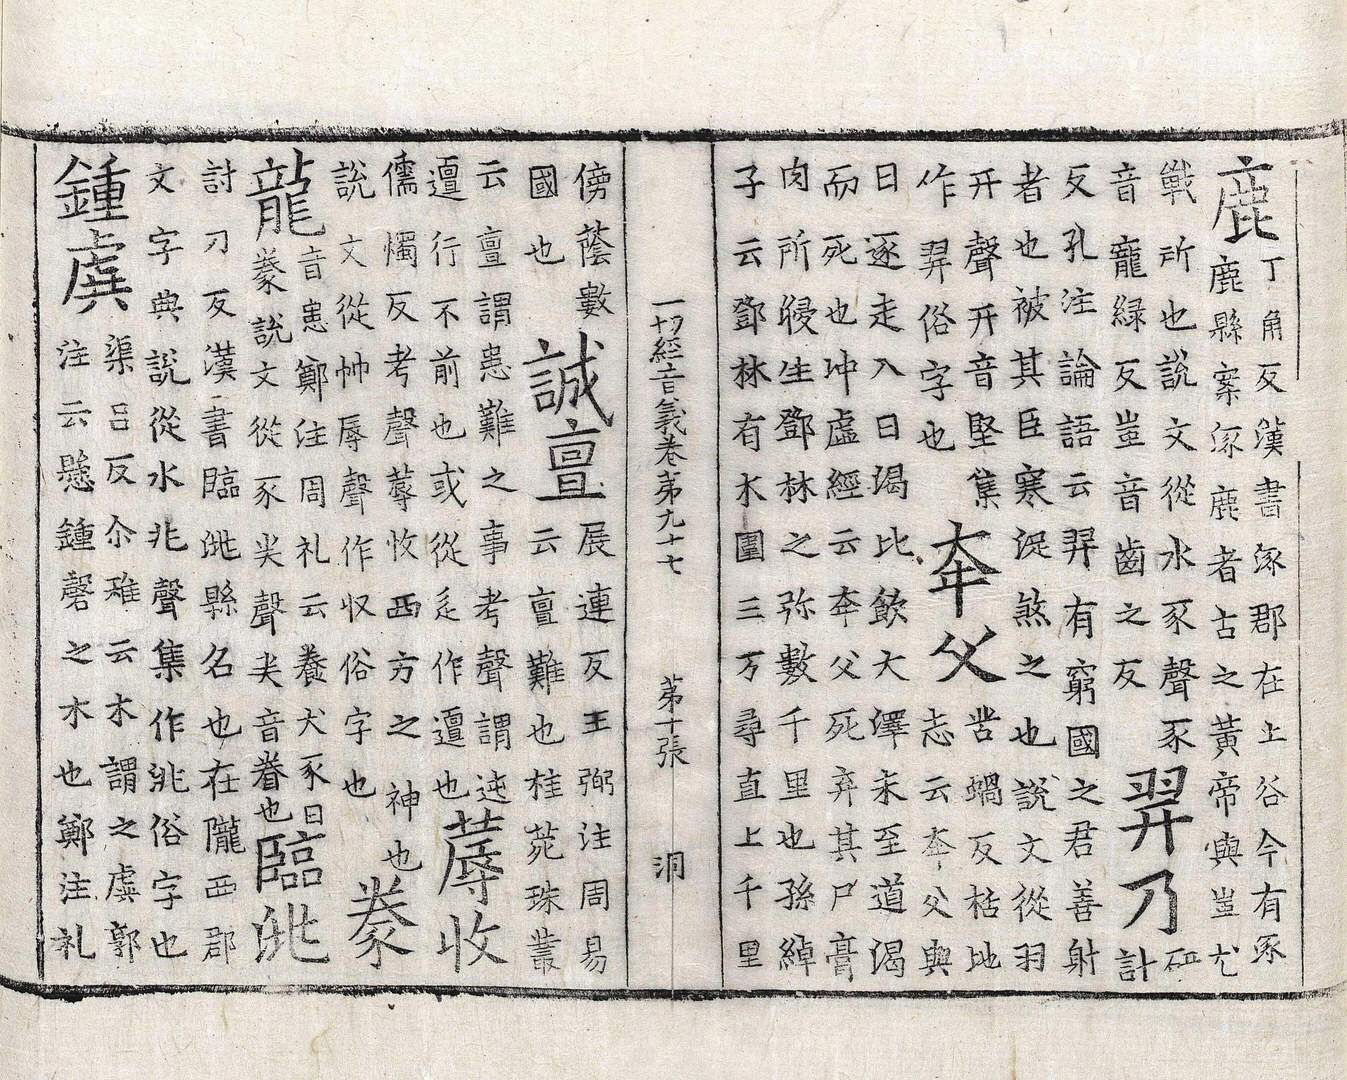 鹿
丁角反漢書涿郡在上谷今有涿
鹿縣案涿鹿者古之黃帝與豈尤
戰所也說文從水豖聲豖
音寵緑反豈音齒之反
羿乃
研
計
反孔注論語云羿有窮國之君善射
者也被其臣寒浞煞之也說文從羽
幵聲幵音堅集
作羿俗字也
夲父
苦蝸反枯地
志云夲父與
日逐走入日渴比飲大澤未至道渴
而死也冲虛經云夲父死弃其尸膏
肉所侵生鄧林之弥數千里也孫綽
子云鄧林有木圍三万尋直上千里
一切經音義卷第九十七 第十張 洞
傍蔭數
國也
誠亶
展連反王弼注周易
云亶難也桂菀珠叢
云亶謂患難之事考聲謂迍
邅行不前也或從辵作邅也
蓐收
儒燭反考聲蓐收西方之神也
說文從艸辱聲作収俗字也
豢
龍
音患鄭注周礼云養犬豕曰
豢說文從豕𢍏聲𢍏音眷也
臨洮
討刀反漢書臨洮縣名也在隴西郡
文字典說從水兆聲集作洮俗字也
鍾虡
渠呂反尒雅云木謂之虡郭
注云懸鍾磬之木也鄭注礼